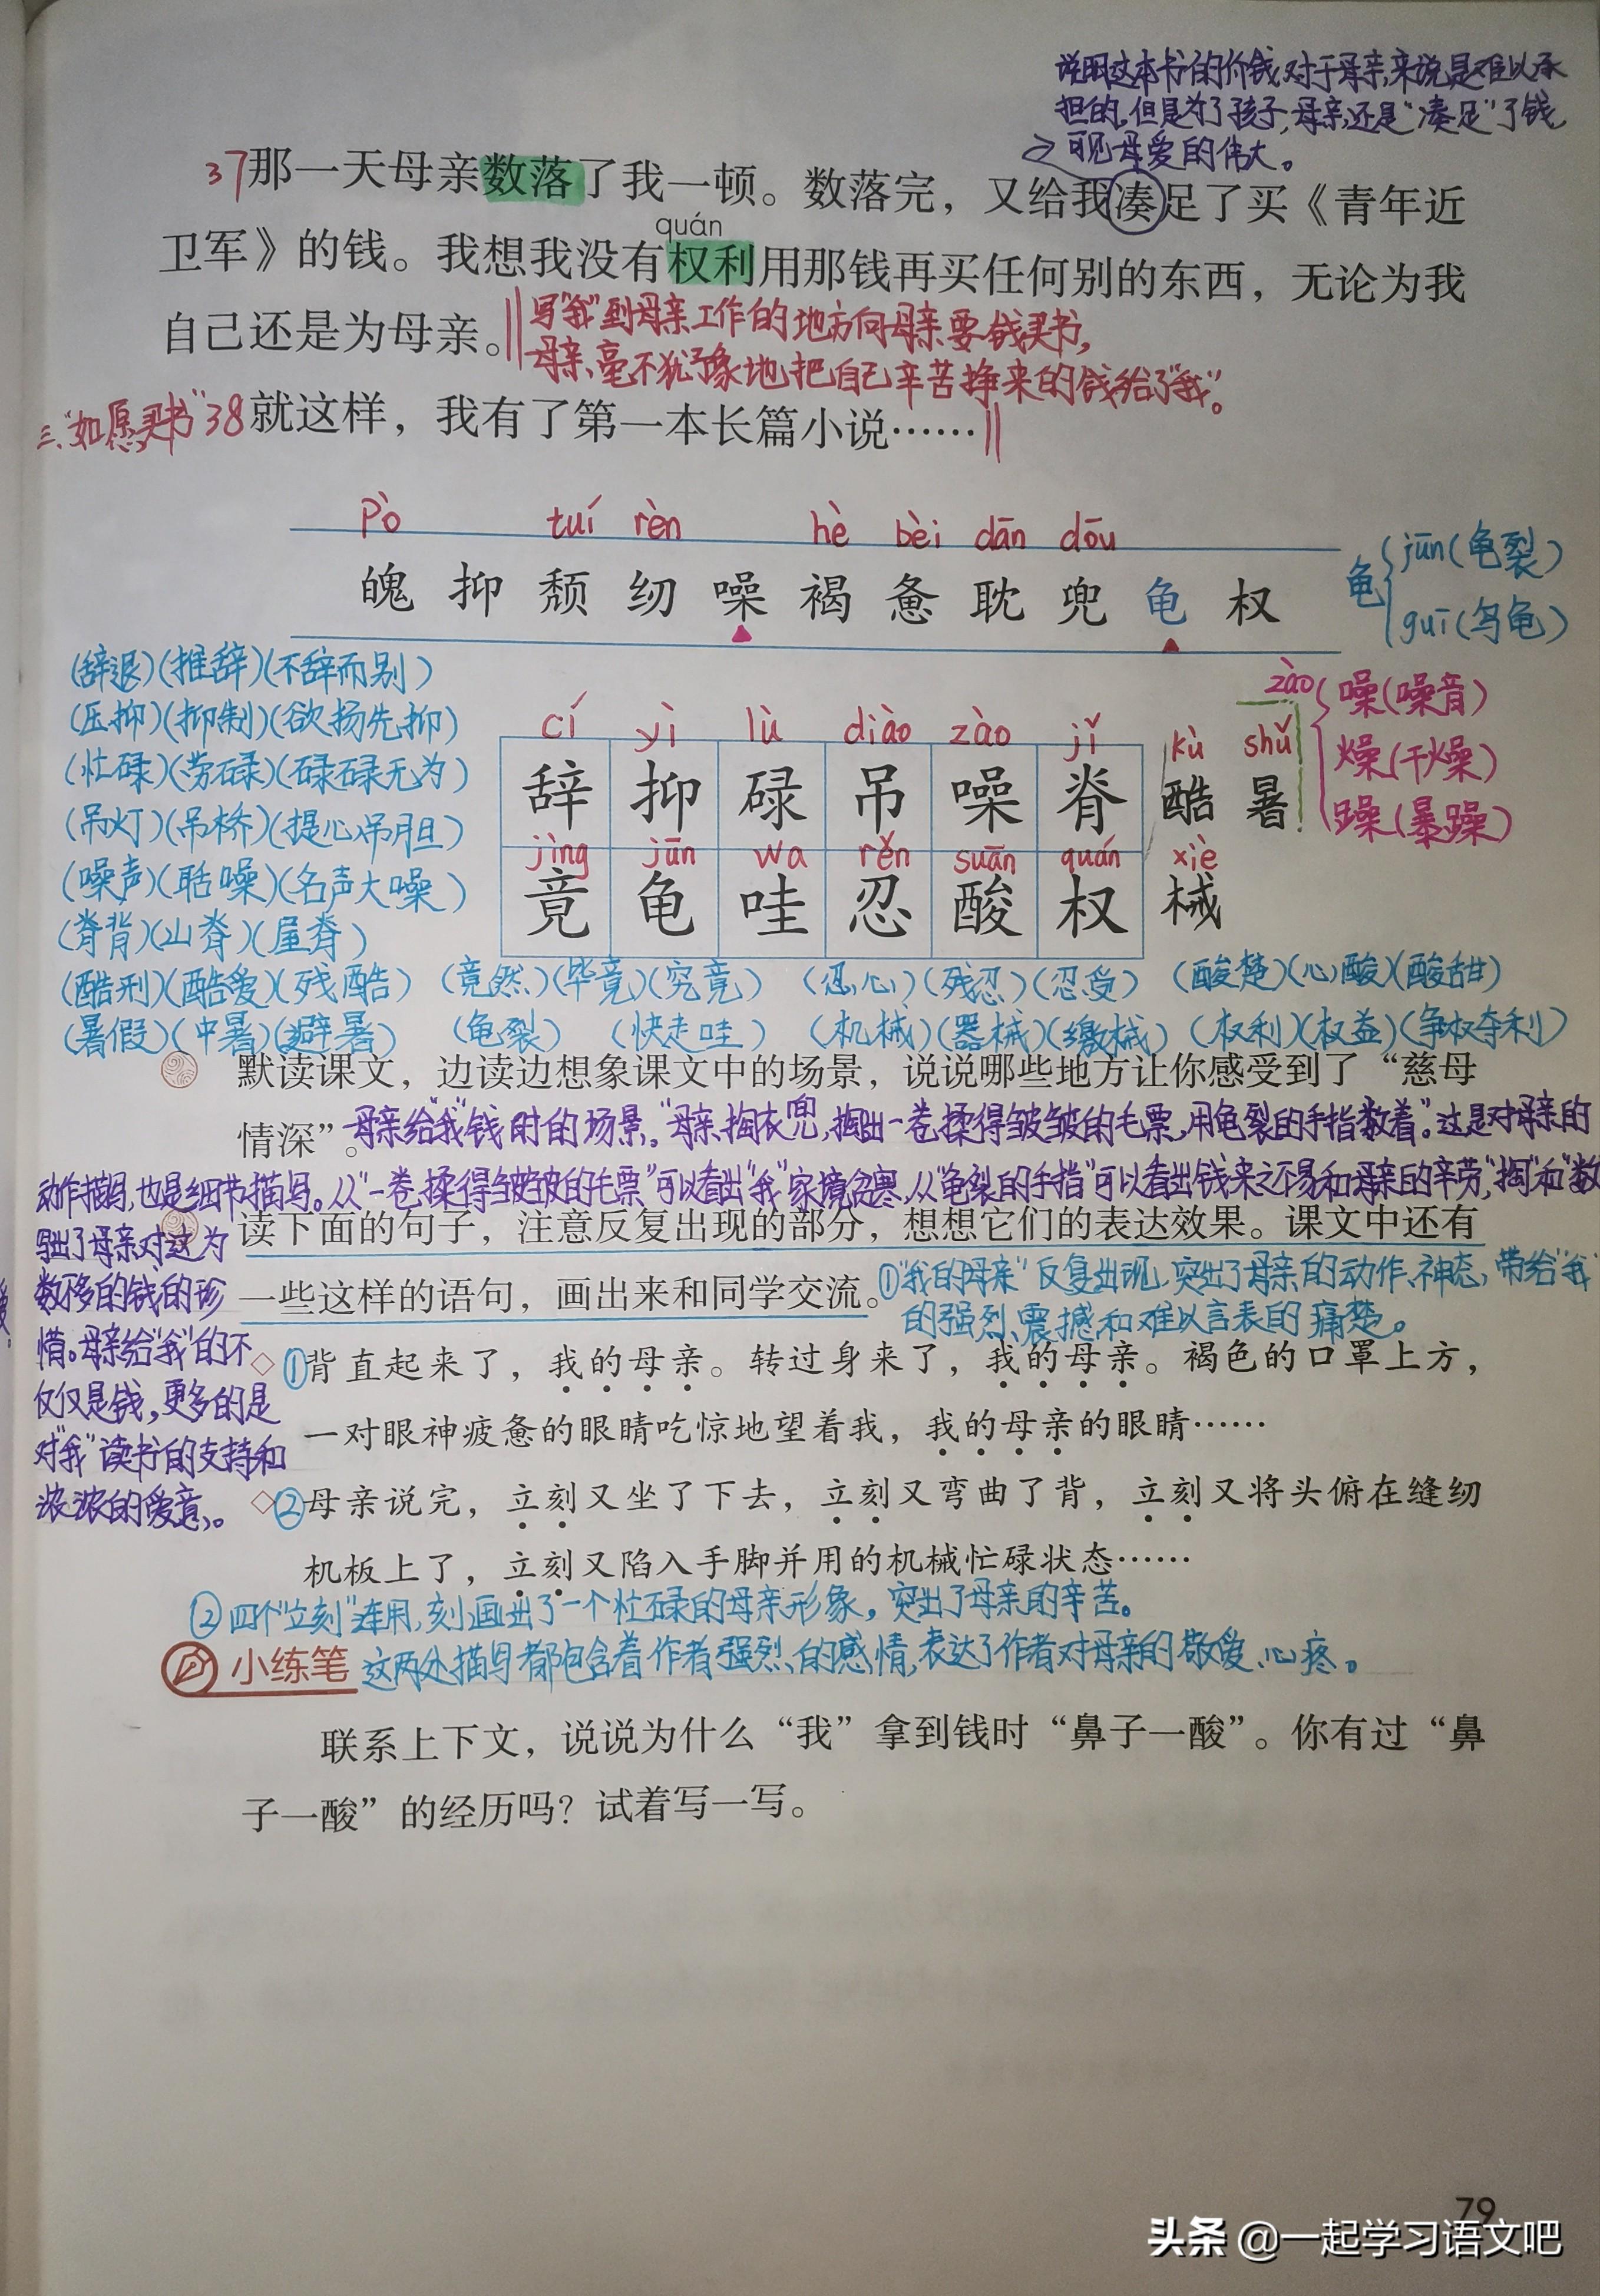 说明这本书的价钱,对于母亲来说是难以承
担的,但是为了孩子,母亲还是“凑足”了钱,
可见母爱的伟大。
37那一天母亲数落了我一顿。数落完，又给我凑足了买《青年近
quán
卫军》的钱。我想我没有权利用那钱再买任何别的东西，无论为我
自己还是为母亲。
写“我”到母亲工作的地方向母亲要钱买书,
母亲毫不犹豫地把自己辛苦挣来的钱给了“我”。
三、“如愿买书”38就这样，我有了第一本长篇小说……
pò tuí rèn hè bèi dān dōu
魄 抑 颓 纫 噪 褐 惫 耽 兜 龟 权
龟 jūn(龟裂)
guī(乌龟)
(辞退)(推辞)(不辞而别)
(压抑)(抑制)(欲扬先抑)
(忙碌)(劳碌)(碌碌无为)
(吊灯)(吊桥)(提心吊胆)
(噪声)(聒噪)(名声大噪)
(脊背)(山脊)(屋脊)
zào 噪(噪音)
燥(干燥)
躁(暴躁)
cí yì lù diào zào jǐ kù shǔ
辞 抑 碌 吊 噪 脊 酷 暑
jìng jūn wa rěn suān quán xiè
竟 龟 哇 忍 酸 权 械
(酷刑)(酷爱)(残酷) (竟然)(毕竟)(究竟) (忍心)(残忍)(忍受) (酸楚)(心酸)(酸甜)
(暑假)(中暑)(避暑) (龟裂) (快走哇) (机械)(器械)(缴械) (权利)(权益)(争权夺利)
默读课文，边读边想象课文中的场景，说说哪些地方让你感受到了“慈母
情深”。
母亲给“我”钱时的场景。“母亲掏衣兜,掏出一卷揉得皱皱的毛票,用龟裂的手指数着”。这是对母亲的
动作描写,也是细节描写。从“一卷揉得皱皱的毛票”可以看出“我”家境贫寒,从“龟裂的手指”可以看出钱来之不易和母亲的辛劳,“掏”和“数”
写出了母亲对这为
数不多的钱的珍
惜。母亲给“我”的不
仅仅是钱,更多的是
对“我”读书的支持和
浓浓的爱意。
读下面的句子，注意反复出现的部分，想想它们的表达效果。课文中还有
一些这样的语句，画出来和同学交流。
①“我的母亲”反复出现,突出了母亲的动作、神态,带给“我”
的强烈震撼和难以言表的痛楚。
①背直起来了，我的母亲。转过身来了，我的母亲。褐色的口罩上方，
一对眼神疲惫的眼睛吃惊地望着我，我的母亲的眼睛……
②母亲说完，立刻又坐了下去，立刻又弯曲了背，立刻又将头俯在缝纫
机板上了，立刻又陷入手脚并用的机械忙碌状态……
②四个“立刻”连用,刻画出了一个忙碌的母亲形象,突出了母亲的辛苦。
小练笔
这两处描写都包含着作者强烈的感情,表达了作者对母亲的敬爱、心疼。
联系上下文，说说为什么“我”拿到钱时“鼻子一酸”。你有过“鼻
子一酸”的经历吗？试着写一写。
79
头条 @一起学习语文吧